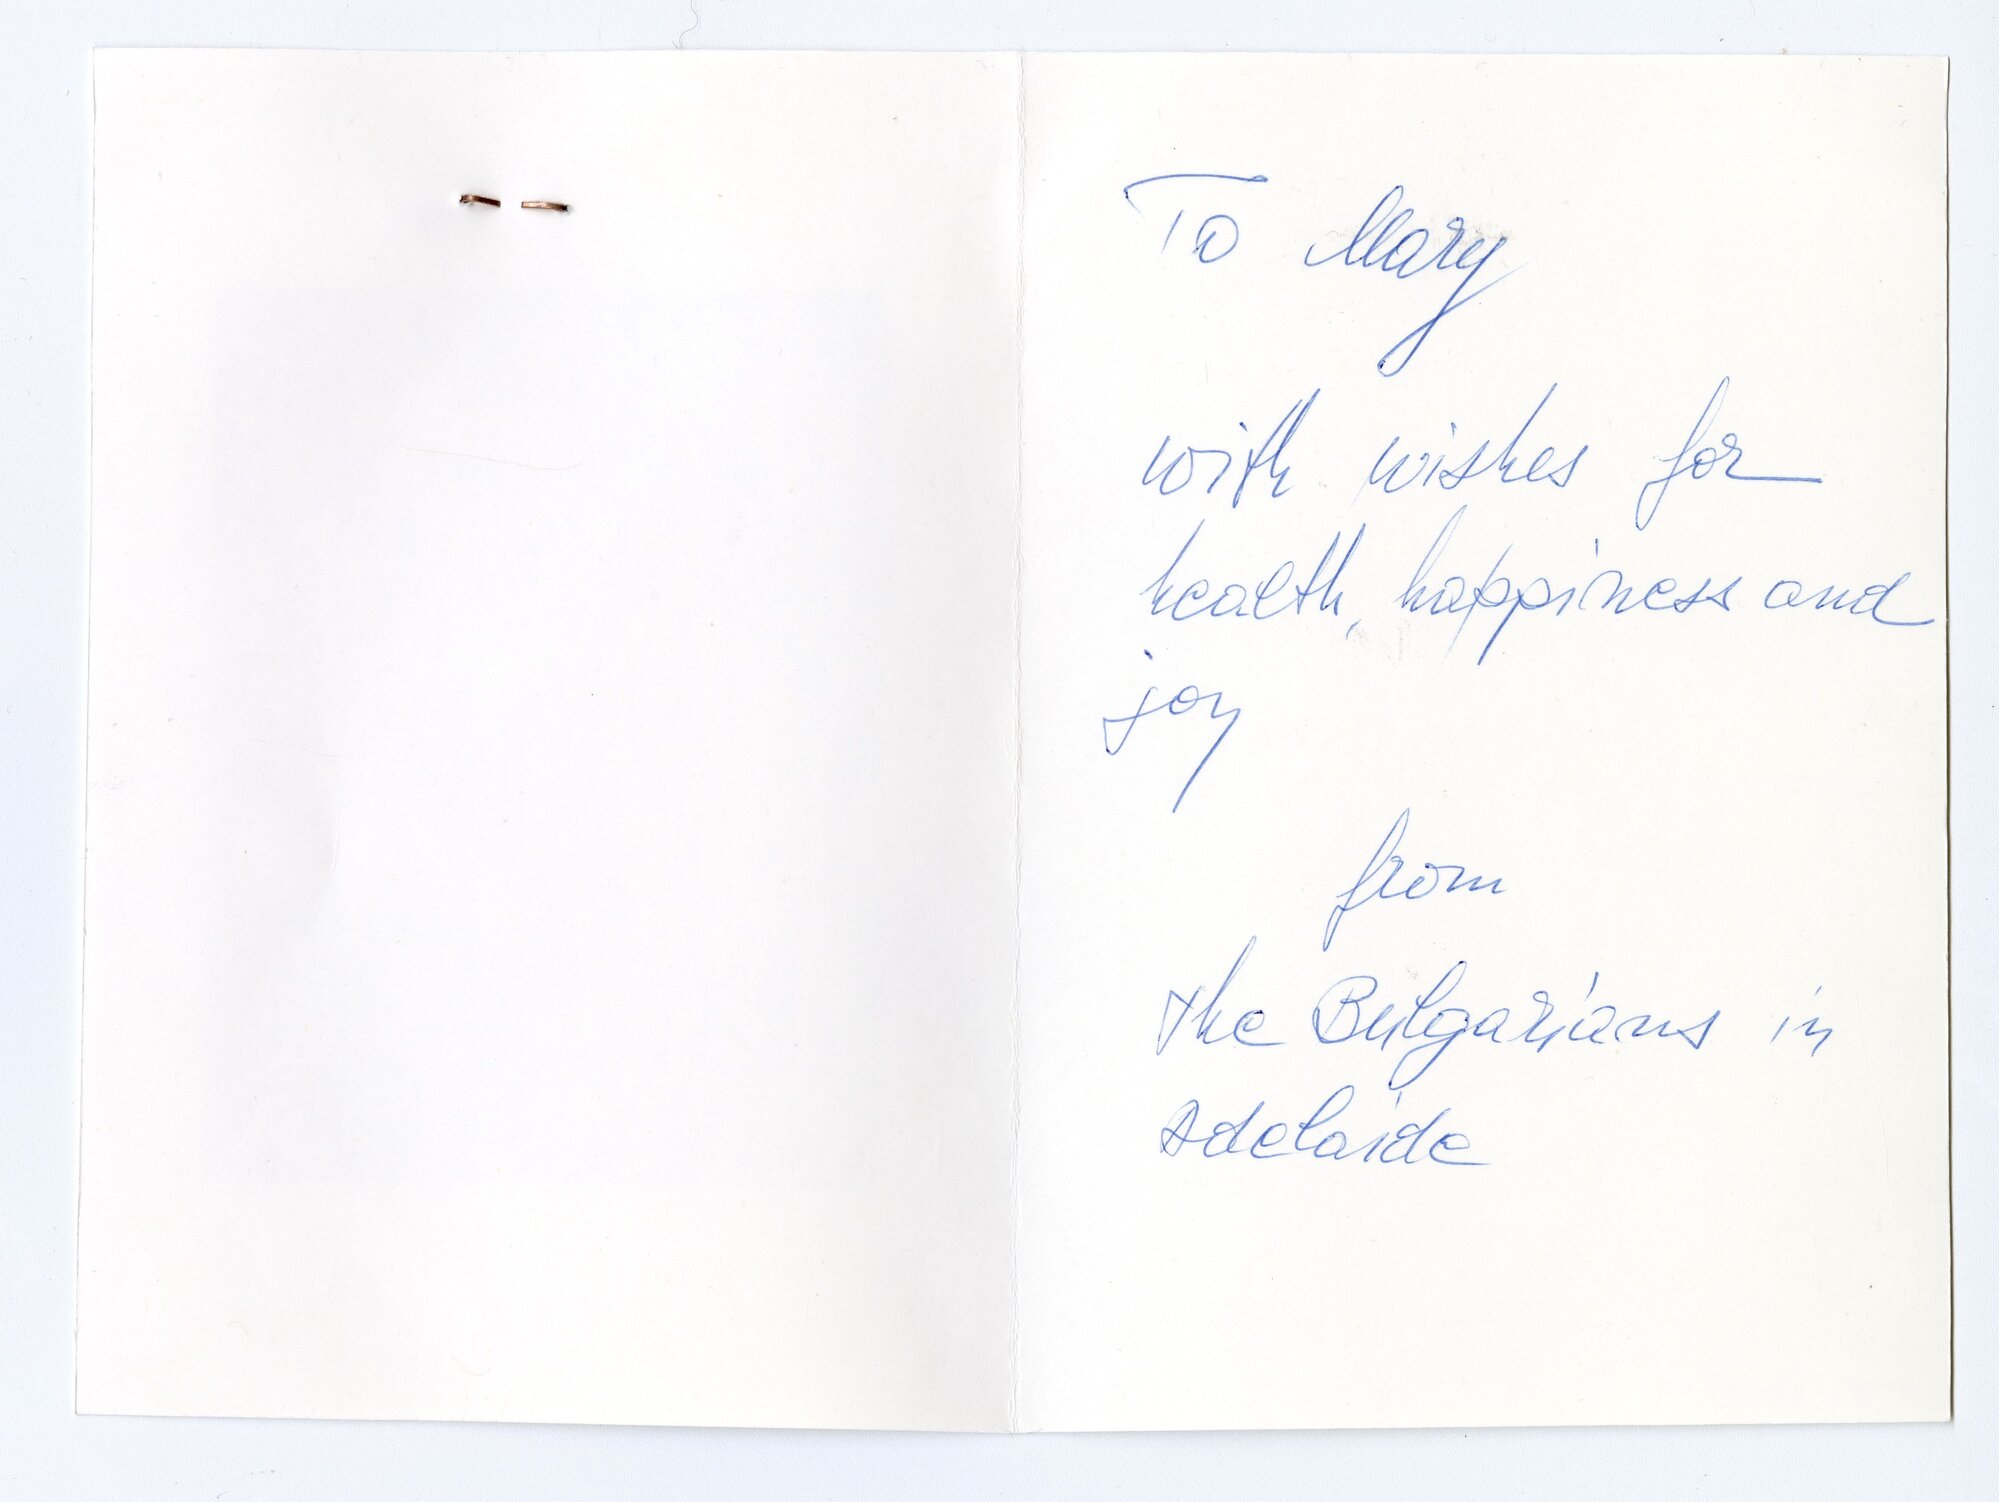 To Mary
with wishes for
health, happiness and
joy
from
the Bulgarians in
Adelaide